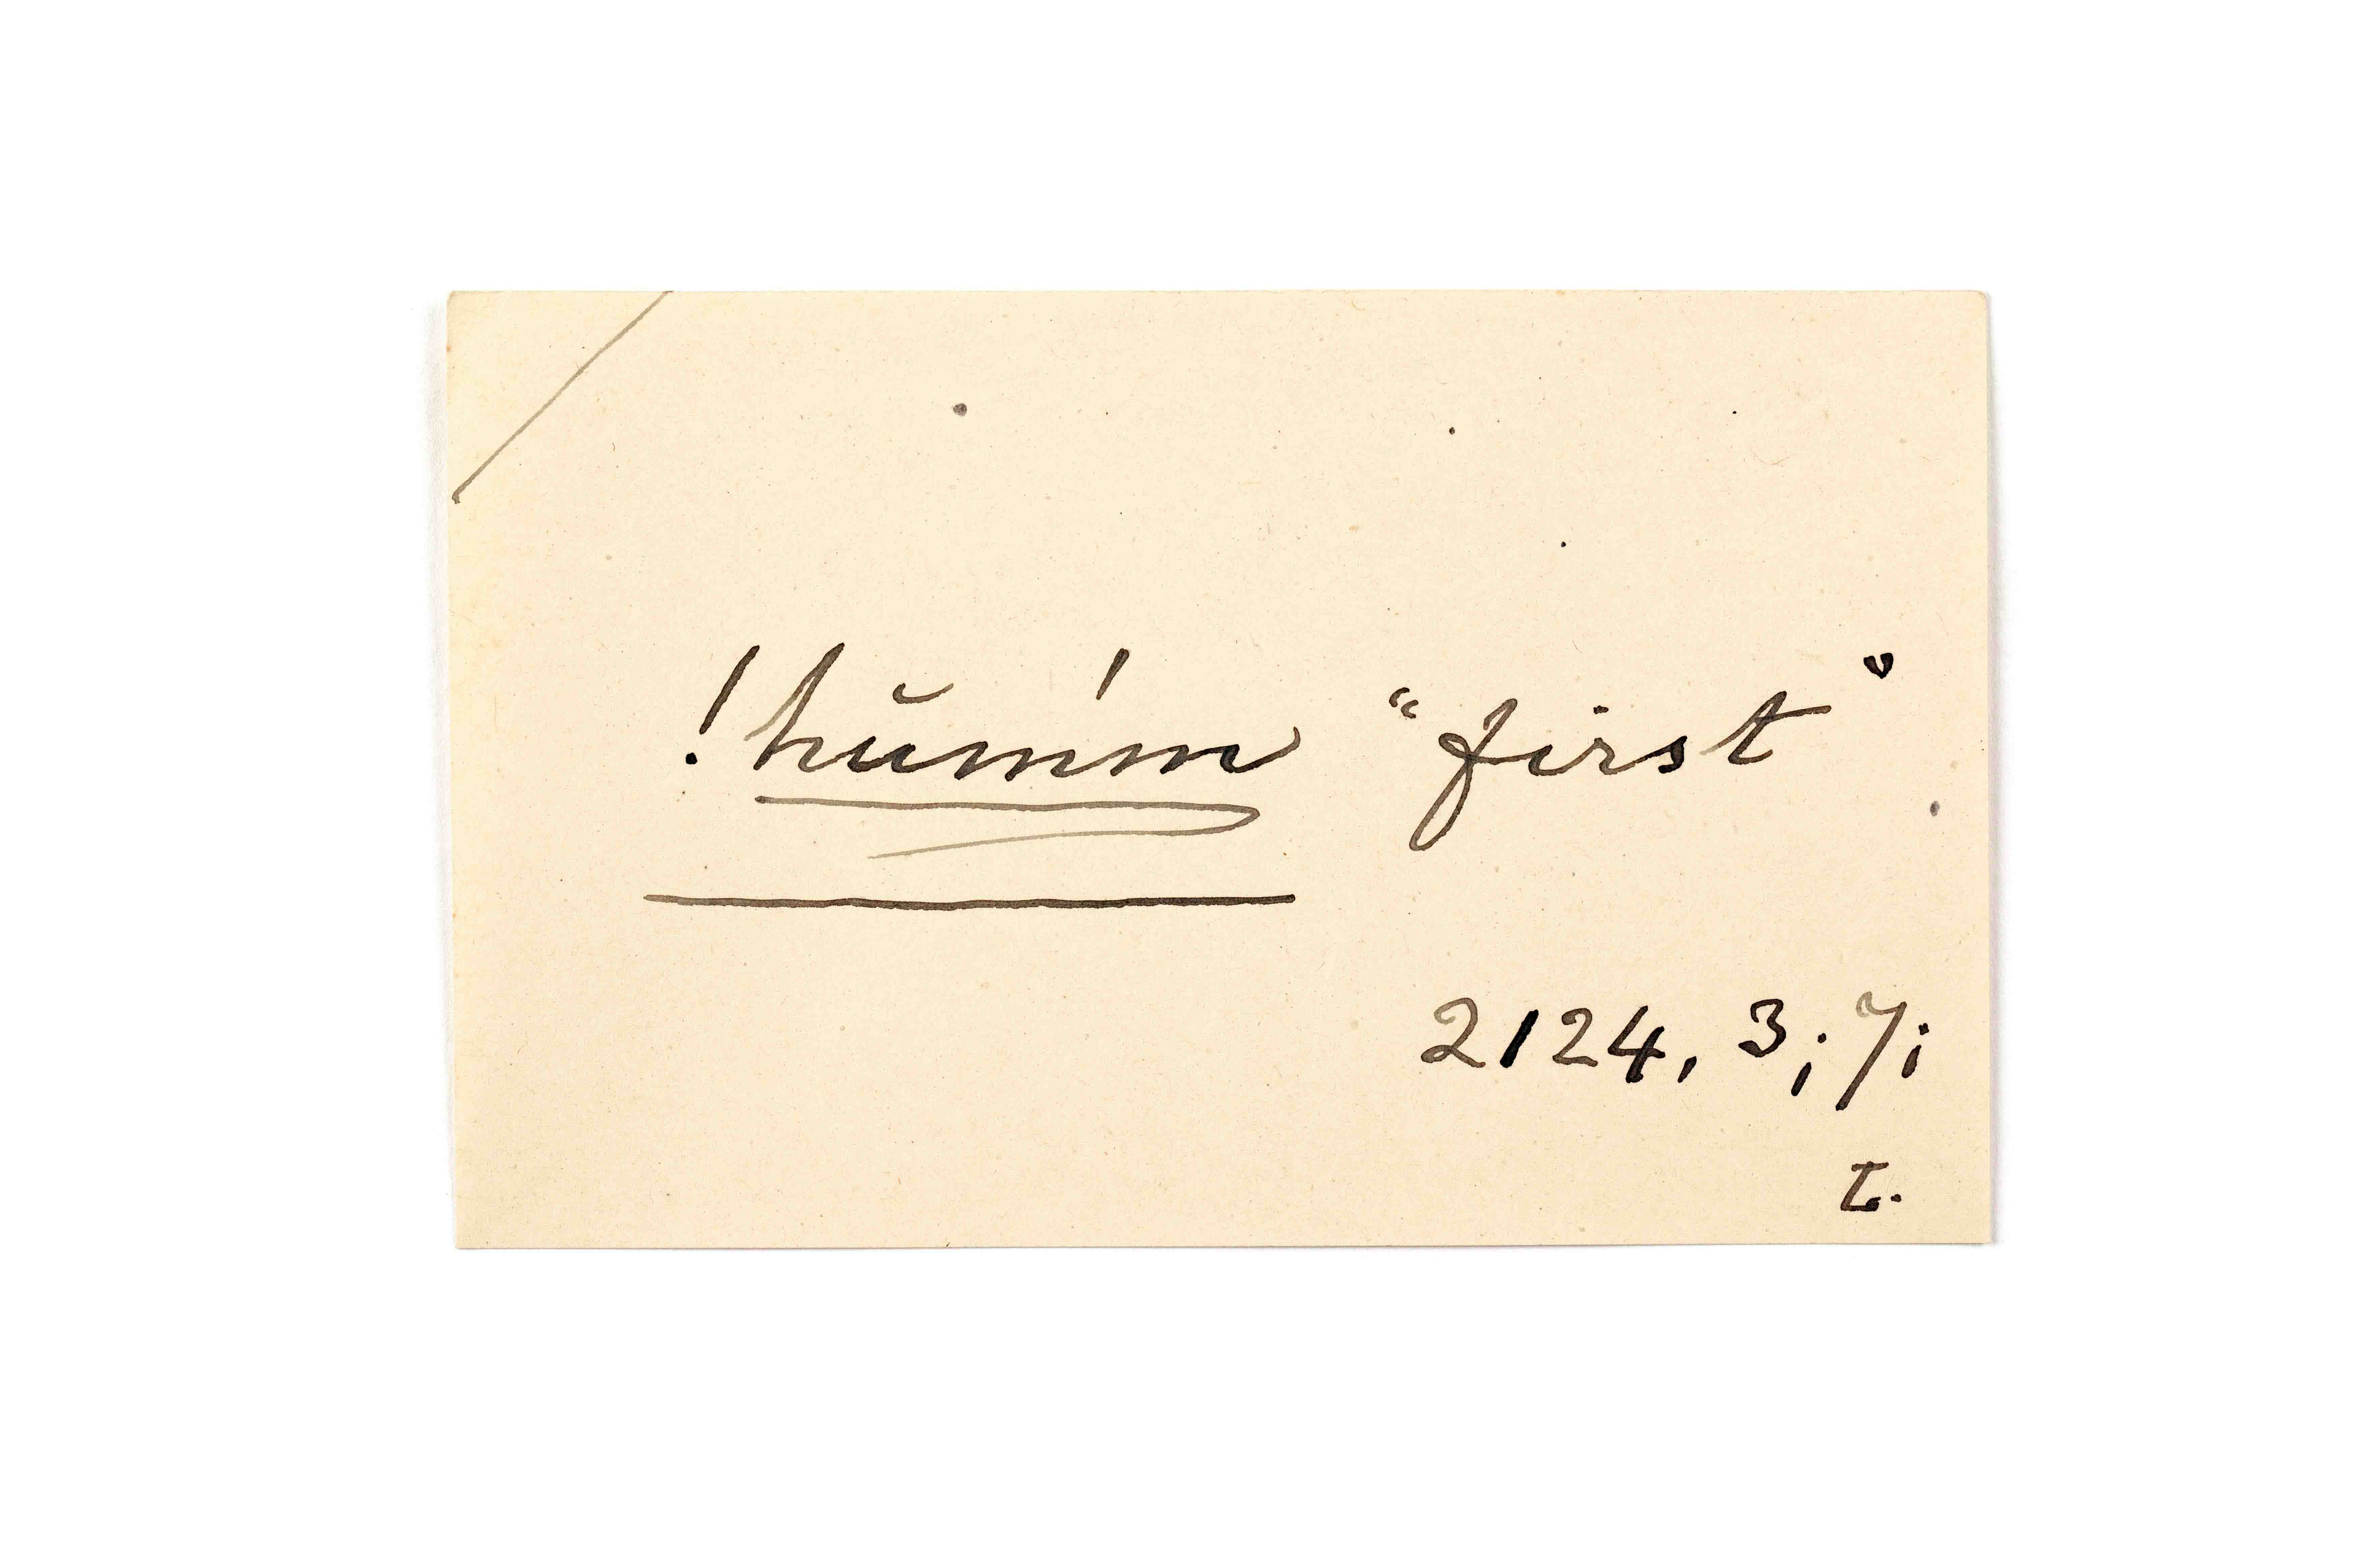 !hŭm'm “first”
2124, 3; 7;
t.